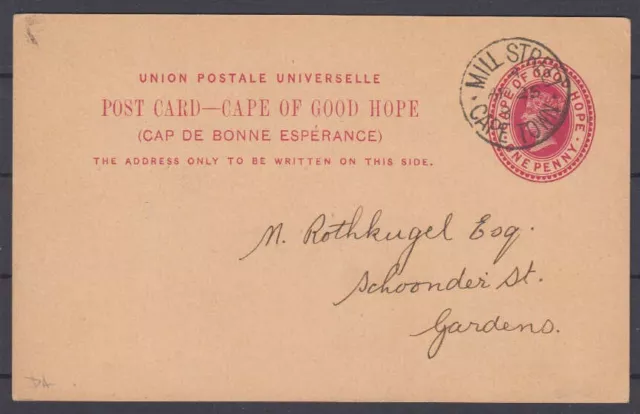 UNION POSTALE UNIVERSELLE
POST CARD—CAPE OF GOOD HOPE
(CAP DE BONNE ESPÉRANCE)
THE ADDRESS ONLY TO BE WRITTEN ON THIS SIDE.
MILL STREET
CAPE TOWN
CAPE OF GOOD HOPE.
ONE PENNY.
M. Rothkugel Esq.
Schoonder St.
Gardens.